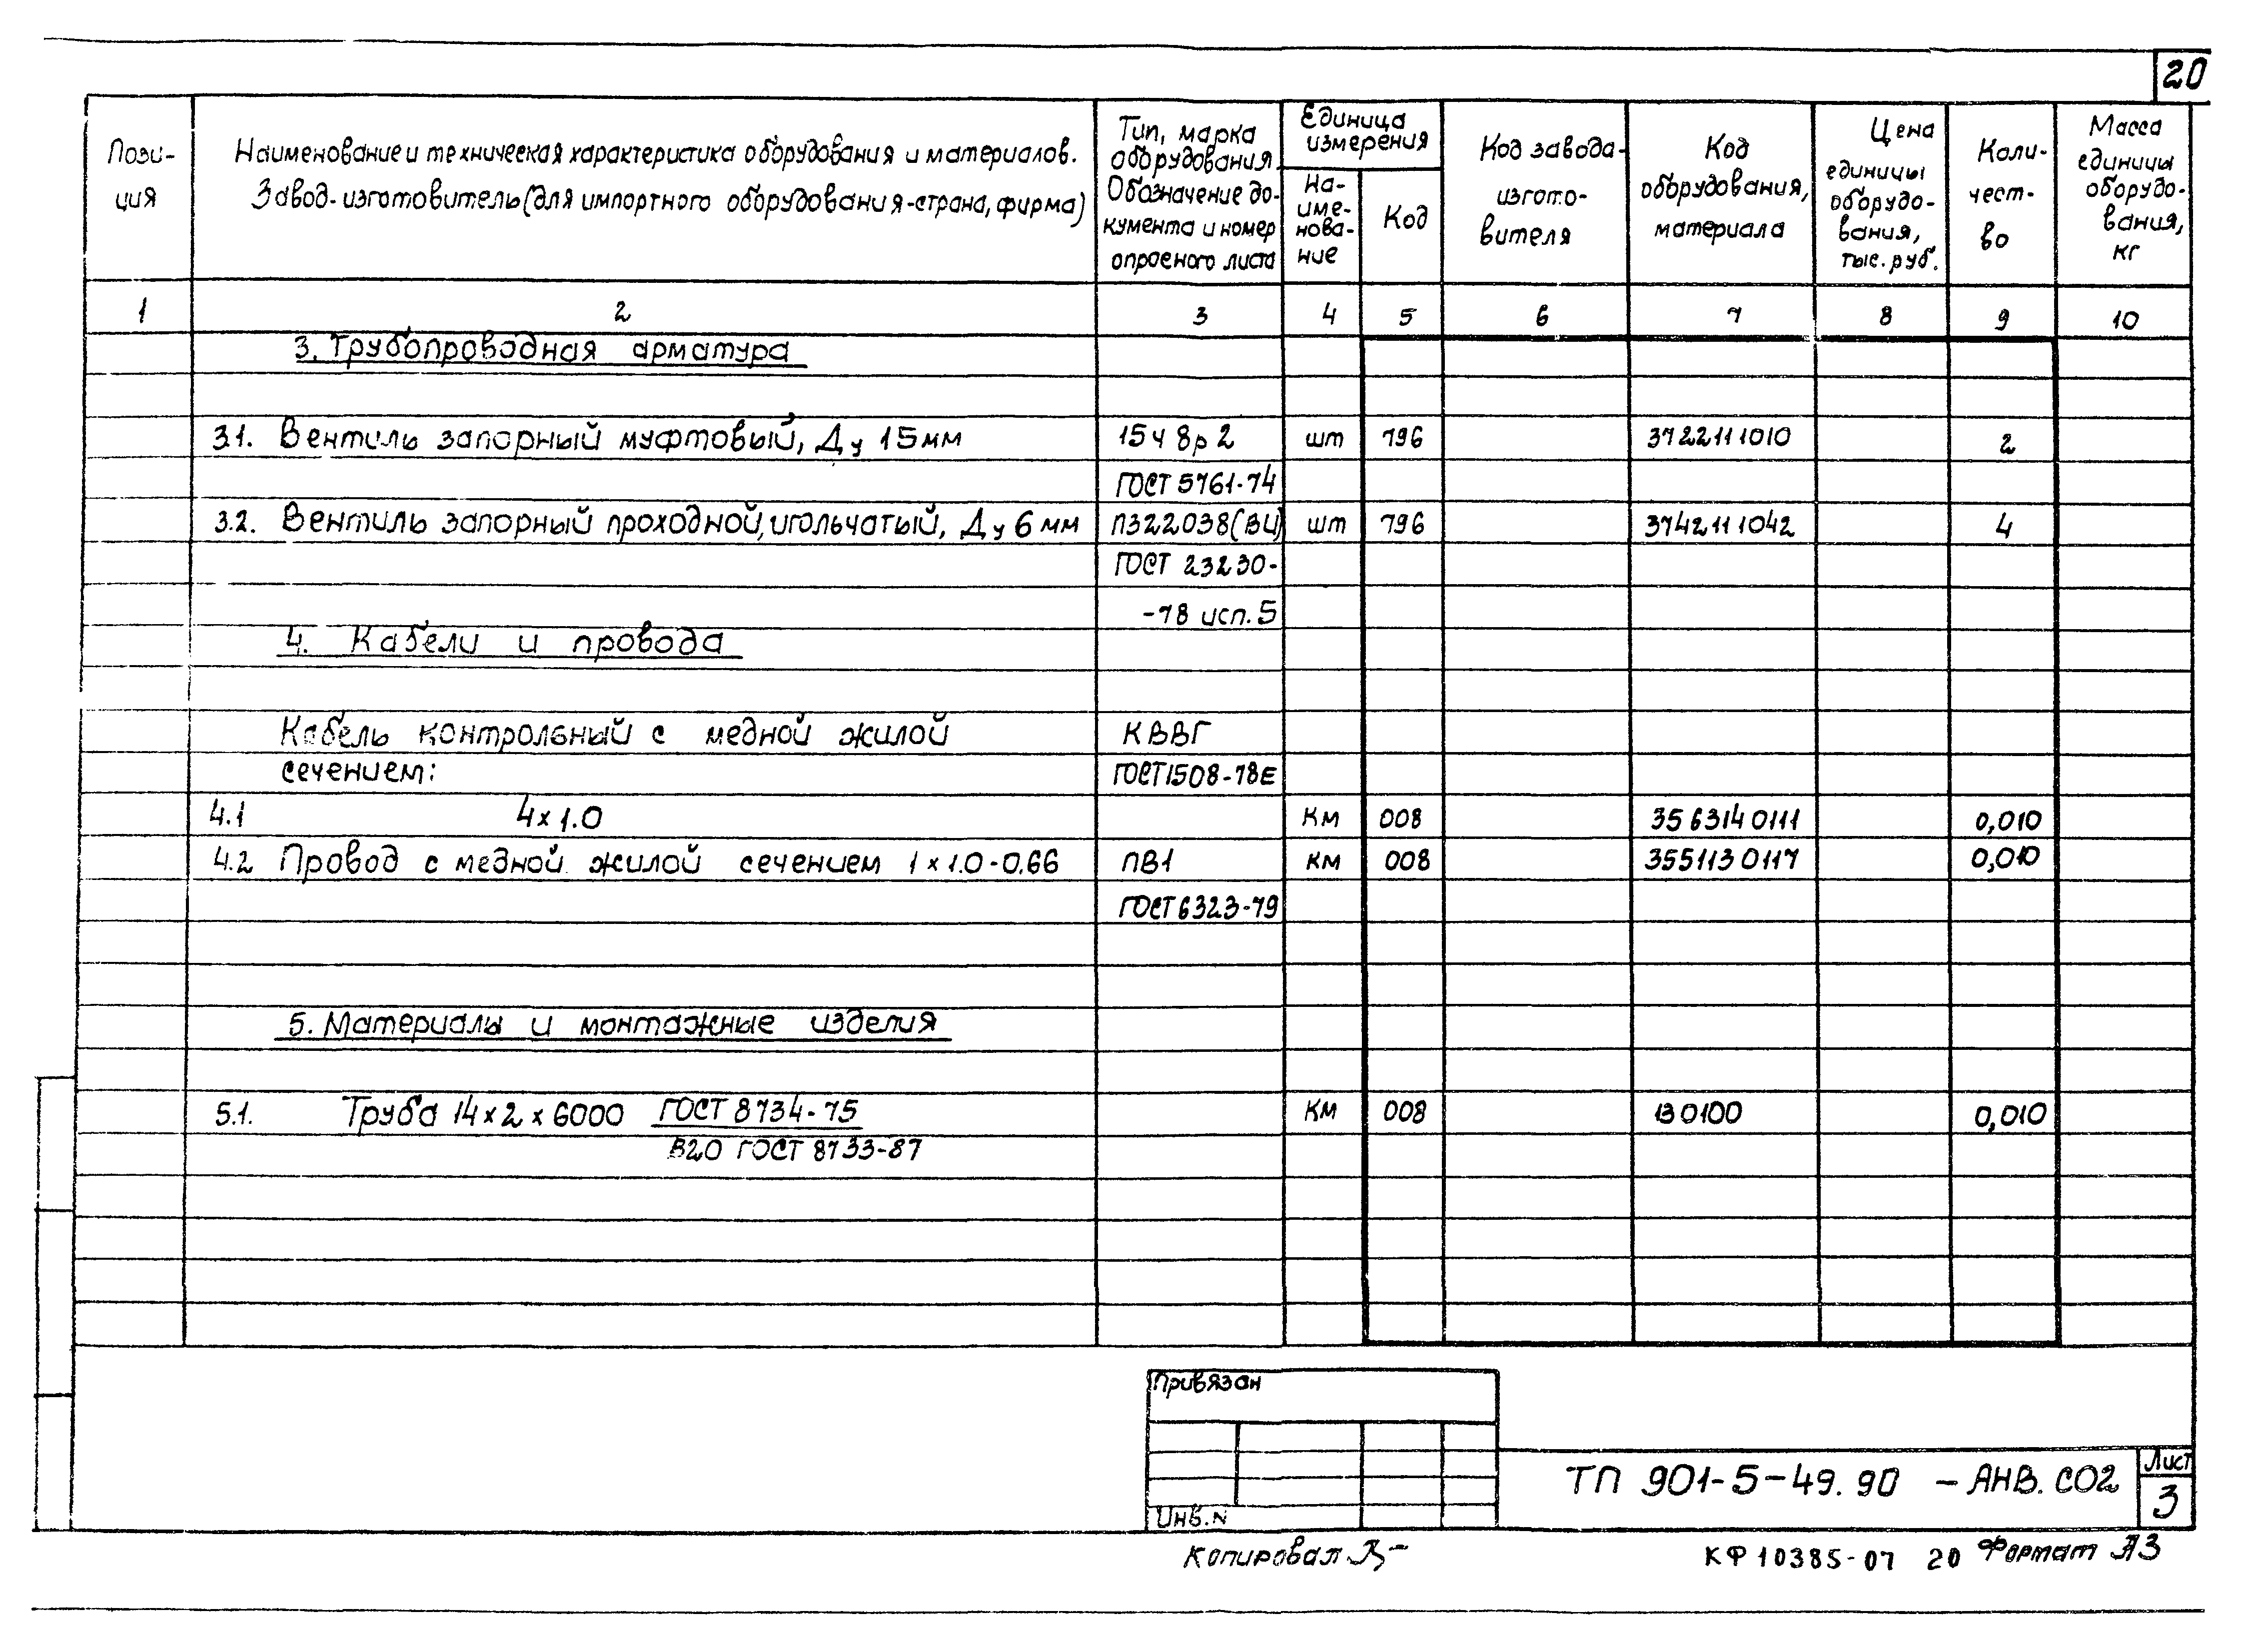 20
Пози-
ция
Наименование и техническая характеристика оборудования и материалов.
Завод-изготовитель (для импортного оборудования-страна, фирма)
Тип, марка
оборудования
Обозначение до-
кумента и номер
опросного листа
Единица
измерения
На-
име-
нова-
ние
Код
Код завода-
изгото-
вителя
Код
оборудования,
материала
Цена
единицы
оборудо-
вания,
тыс. руб.
Коли-
чест-
во
Масса
единицы
оборудо-
вания,
кг
1 2 3 4 5 6 7 8 9 10
3. Трубопроводная арматура
3.1. Вентиль запорный муфтовый, Ду 15мм 15ч 8р 2 шт 796 3722111010 2
ГОСТ 5761-74
3.2. Вентиль запорный проходной, игольчатый, Ду 6 мм П322038(ВЦ) шт 796 3742111042 4
ГОСТ 23230-
-78 исп. 5
4. Кабели и провода
Кабель контрольный с медной жилой КВВГ
сечением: ГОСТ1508-78Е
4.1 4×1.0 Км 008 3563140111 0,010
4.2 Провод с медной жилой сечением 1×1.0-0.66 ПВ1 км 008 3551130117 0,010
ГОСТ 6323-79
5. Материалы и монтажные изделия
5.1. Труба 14×2×6000 ГОСТ 8734-75 Км 008 130100 0,010
В20 ГОСТ 8733-87
Привязан
Инв. N
ТП 901-5-49.90 - АНВ. СО2
Лист
3
Копировал
КФ 10385-07 20 Формат А3